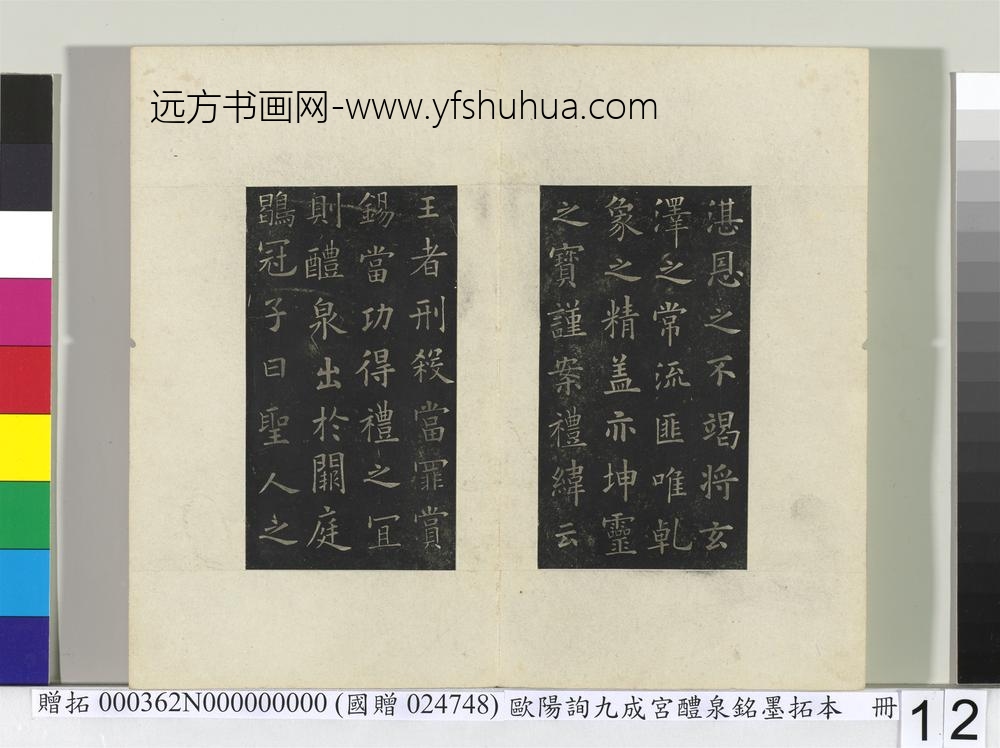 远方书画网-www.yfshuhua.com
湛恩之不竭将玄
澤之常流匪唯乹
象之精盖亦坤靈
之寳謹案禮緯云
王者刑殺當罪賞
錫當功得禮之冝
則醴泉出於闕庭
鶡冠子曰聖人之
贈拓 000362N000000000 (國贈 024748) 歐陽詢九成宮醴泉銘墨拓本 冊
12